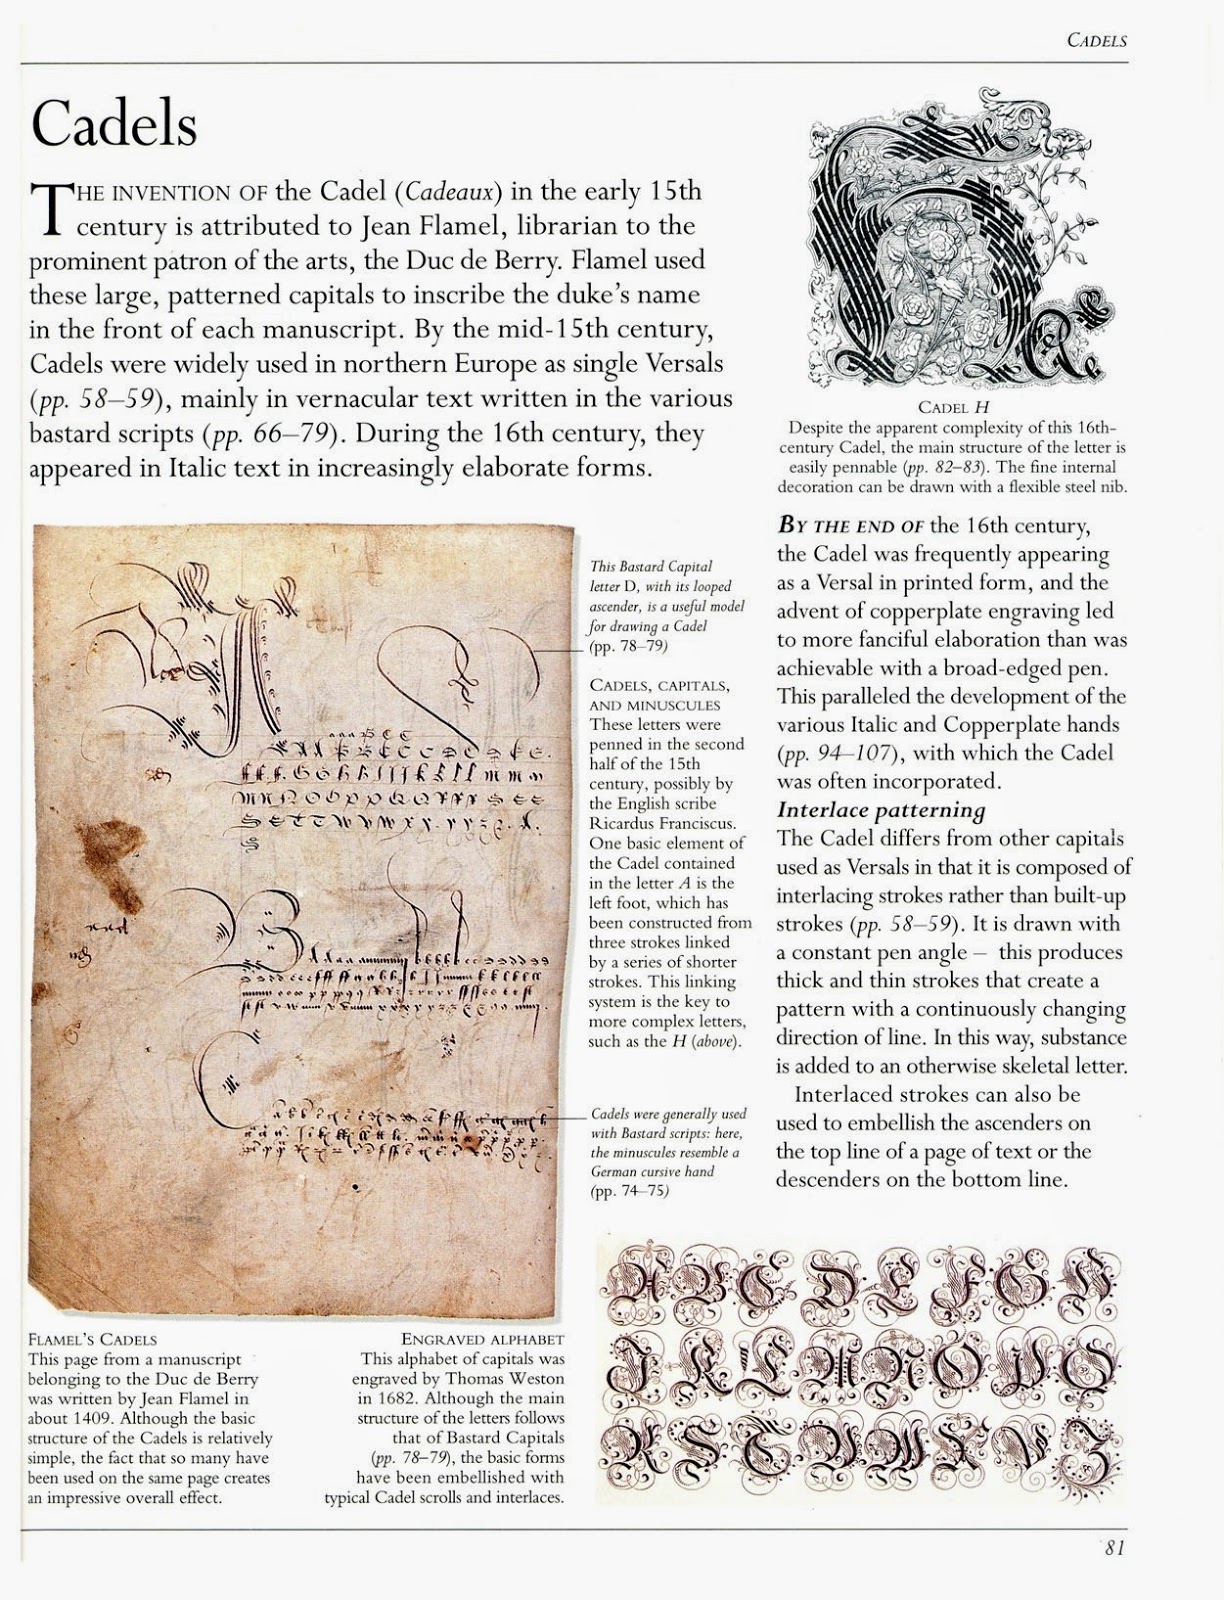 CADELS
Cadels
THE INVENTION OF the Cadel (Cadeaux) in the early 15th
century is attributed to Jean Flamel, librarian to the
prominent patron of the arts, the Duc de Berry. Flamel used
these large, patterned capitals to inscribe the duke's name
in the front of each manuscript. By the mid-15th century,
Cadels were widely used in northern Europe as single Versals
(pp. 58–59), mainly in vernacular text written in the various
bastard scripts (pp. 66–79). During the 16th century, they
appeared in Italic text in increasingly elaborate forms.
CADEL H
Despite the apparent complexity of this 16th-
century Cadel, the main structure of the letter is
easily pennable (pp. 82–83). The fine internal
decoration can be drawn with a flexible steel nib.
This Bastard Capital
letter D, with its looped
ascender, is a useful model
for drawing a Cadel
(pp. 78–79)
CADELS, CAPITALS,
AND MINUSCULES
These letters were
penned in the second
half of the 15th
century, possibly by
the English scribe
Ricardus Franciscus.
One basic element of
the Cadel contained
in the letter A is the
left foot, which has
been constructed from
three strokes linked
by a series of shorter
strokes. This linking
system is the key to
more complex letters,
such as the H (above).
Cadels were generally used
with Bastard scripts: here,
the minuscules resemble a
German cursive hand
(pp. 74–75)
BY THE END OF the 16th century,
the Cadel was frequently appearing
as a Versal in printed form, and the
advent of copperplate engraving led
to more fanciful elaboration than was
achievable with a broad-edged pen.
This paralleled the development of the
various Italic and Copperplate hands
(pp. 94–107), with which the Cadel
was often incorporated.
Interlace patterning
The Cadel differs from other capitals
used as Versals in that it is composed of
interlacing strokes rather than built-up
strokes (pp. 58–59). It is drawn with
a constant pen angle – this produces
thick and thin strokes that create a
pattern with a continuously changing
direction of line. In this way, substance
is added to an otherwise skeletal letter.
Interlaced strokes can also be
used to embellish the ascenders on
the top line of a page of text or the
descenders on the bottom line.
FLAMEL'S CADELS
This page from a manuscript
belonging to the Duc de Berry
was written by Jean Flamel in
about 1409. Although the basic
structure of the Cadels is relatively
simple, the fact that so many have
been used on the same page creates
an impressive overall effect.
ENGRAVED ALPHABET
This alphabet of capitals was
engraved by Thomas Weston
in 1682. Although the main
structure of the letters follows
that of Bastard Capitals
(pp. 78–79), the basic forms
have been embellished with
typical Cadel scrolls and interlaces.
A B C D E F G H
I K L M N O P Q
R S T U W X Y Z
81